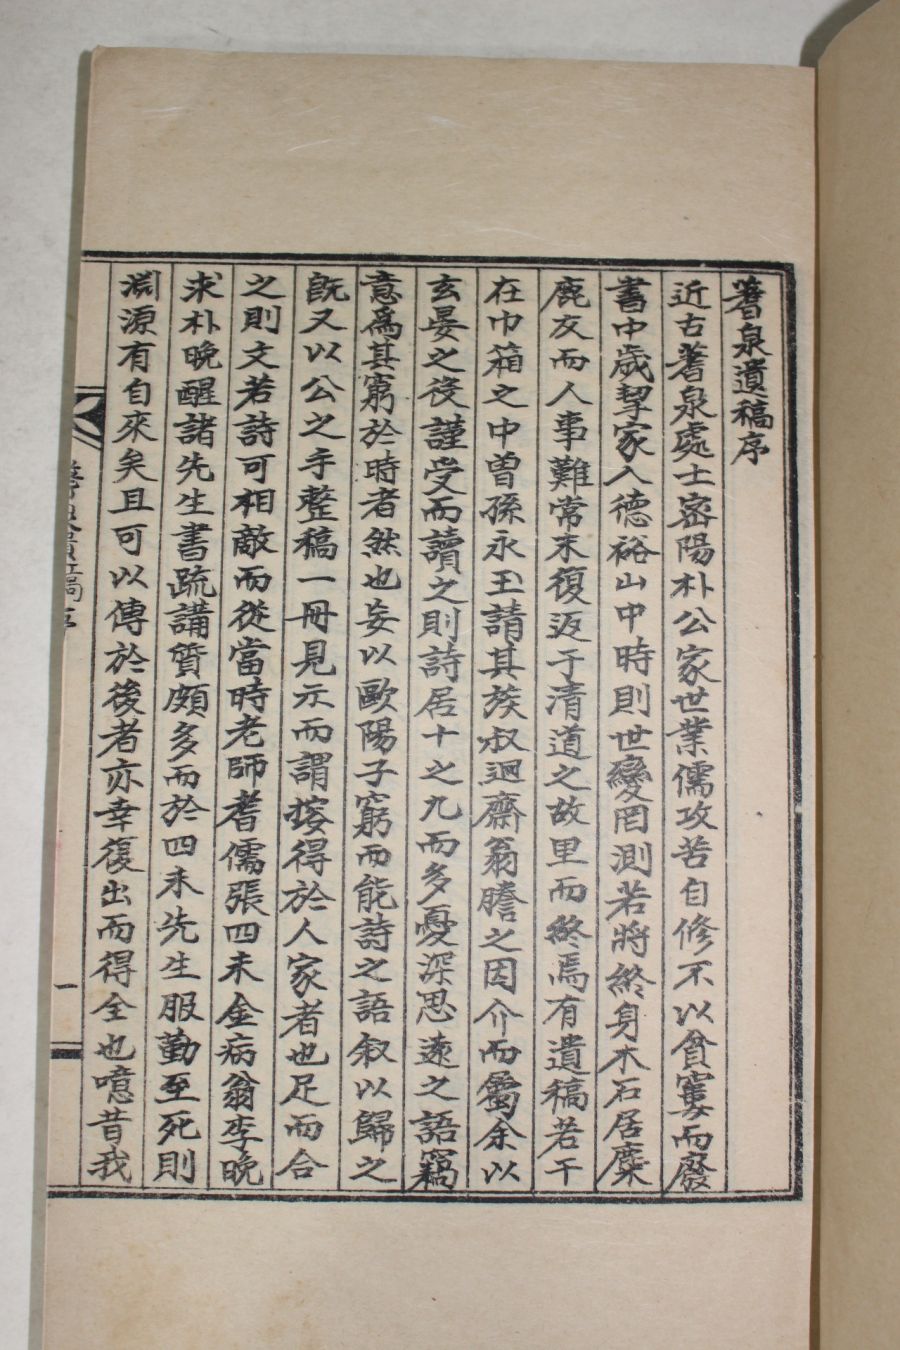 蓍泉遺稿序
近古蓍泉處士密陽朴公家世業儒攻苦自修不以貧窶而廢
書中歲挈家入德裕山中時則世變罔測若將終身木石居麋
鹿友而人事難常末復返于清道之故里而終焉有遺稿若干
在巾箱之中曽孫永玉請其族叔逈齋翁謄之因介而屬余以
玄晏之役謹受而讀之則詩居十之九而多憂深思遠之語竊
意爲其窮於時者然也妄以歐陽子窮而能詩之語叙以歸之
旣又以公之手整稿一冊見示而謂搜得於人家者也足而合
之則文若詩可相敵而從當時老師耆儒張四未金病翁李晩
求朴晩醒諸先生書疏講質頗多而於四未先生服勤至死則
淵源有自來矣且可以傳於後者亦幸復出而得全也噫昔我
一